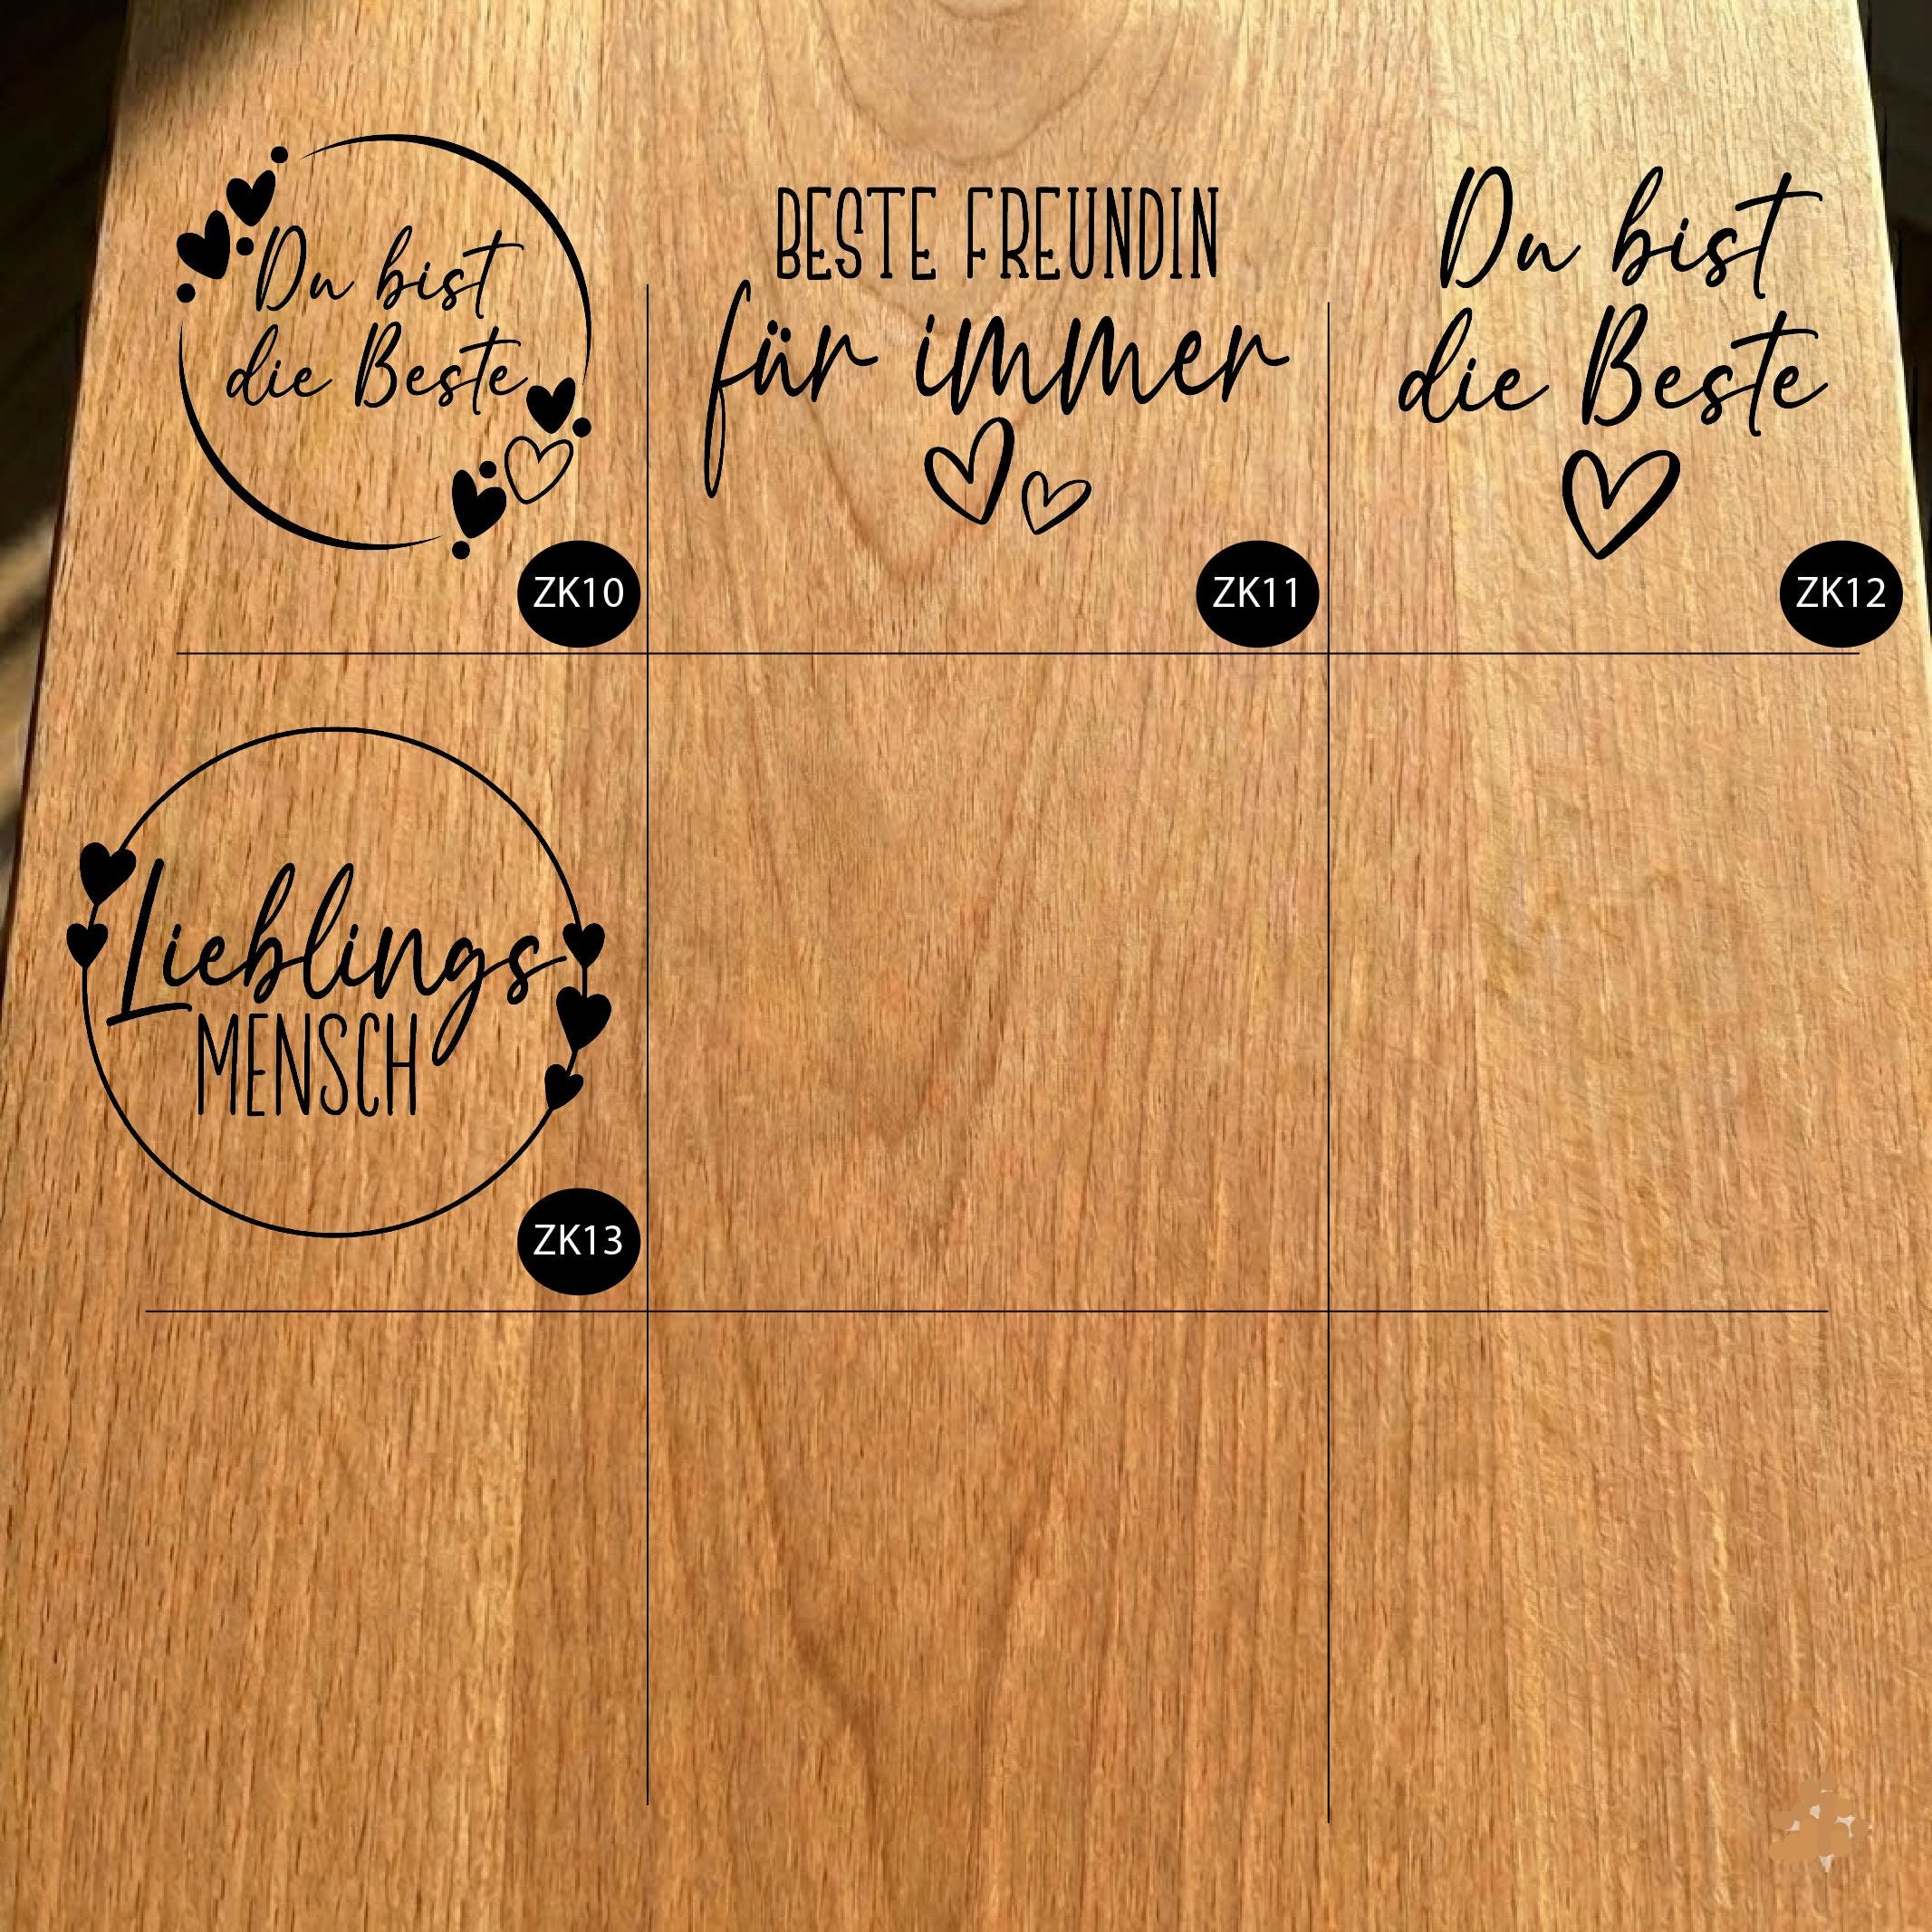 Du bist
die Beste
ZK10
BESTE FREUNDIN
für immer
ZK11
Du bist
die Beste
ZK12
Lieblings
MENSCH
ZK13